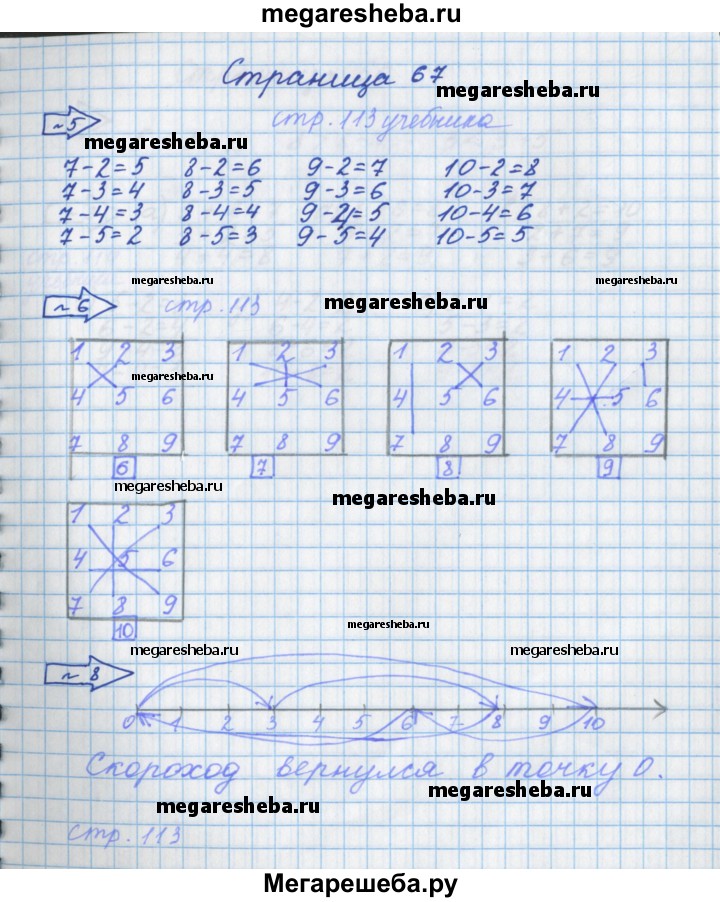 megaresheba.ru
Страница 67
megaresheba.ru
№5 стр. 113 учебника
megaresheba.ru
7-2=5 8-2=6 9-2=7 10-2=8
7-3=4 8-3=5 9-3=6 10-3=7
7-4=3 8-4=4 9-4=5 10-4=6
7-5=2 8-5=3 9-5=4 10-5=5
megaresheba.ru megaresheba.ru
№6 стр. 113 megaresheba.ru
1 2 3 1 2 3 1 2 3 1 2 3
megaresheba.ru
4 5 6 4 5 6 4 5 6 4 5 6
7 8 9 7 8 9 7 8 9 7 8 9
6 7 8 9
megaresheba.ru
megaresheba.ru
1 2 3
4 5 6
7 8 9
10
megaresheba.ru
megaresheba.ru megaresheba.ru
№8
0 1 2 3 4 5 6 7 8 9 10
Скороход вернулся в точку 0.
megaresheba.ru
megaresheba.ru
стр. 113
Мегарешеба.ру